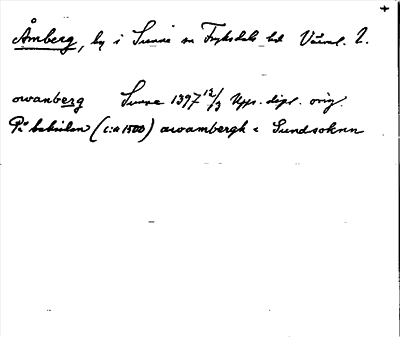 Åmberg, by i Sunne sn Fryksdals hd Värml. l.
owanberg Sunne 1397 12/3 Upps. dipl. orig.
På baksidan (c:a 1500) awambergh i Sundsoknn